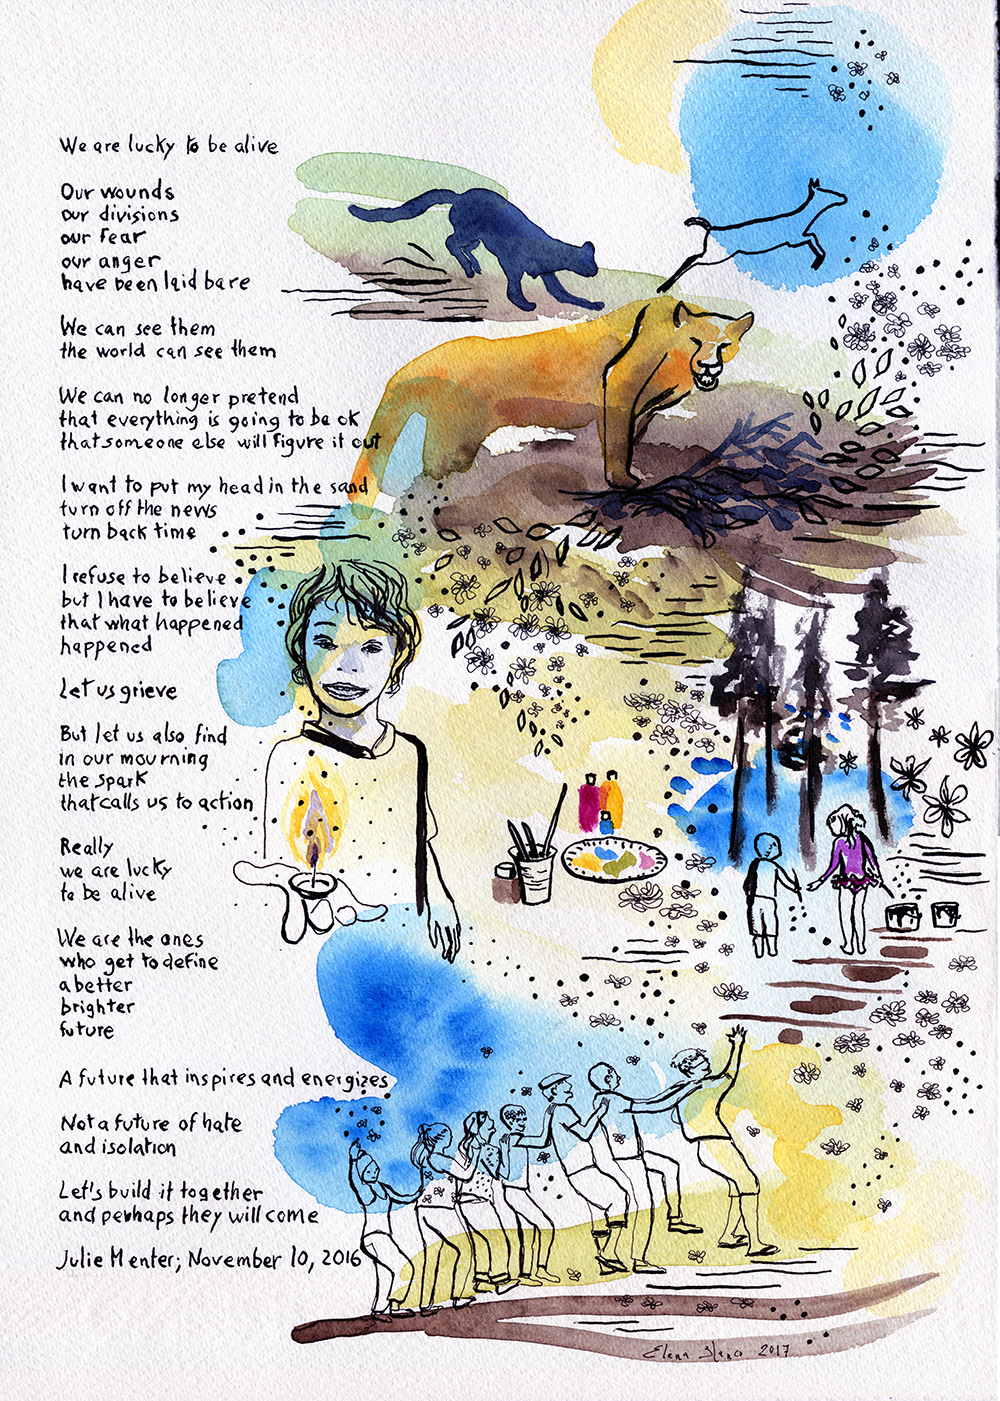 We are lucky to be alive
Our wounds
our divisions
our fear
our anger
have been laid bare
We can see them
the world can see them
We can no longer pretend
that everything is going to be ok
that someone else will figure it out
I want to put my head in the sand
turn off the news
turn back time
I refuse to believe
but I have to believe
that what happened
happened
Let us grieve
But let us also find
in our mourning
the spark
that calls us to action
Really
we are lucky
to be alive
We are the ones
who get to define
a better
brighter
future
A future that inspires and energizes
Not a future of hate
and isolation
Let's build it together
and perhaps they will come
Julie Menter; November 10, 2016
Elena Blanco 2017